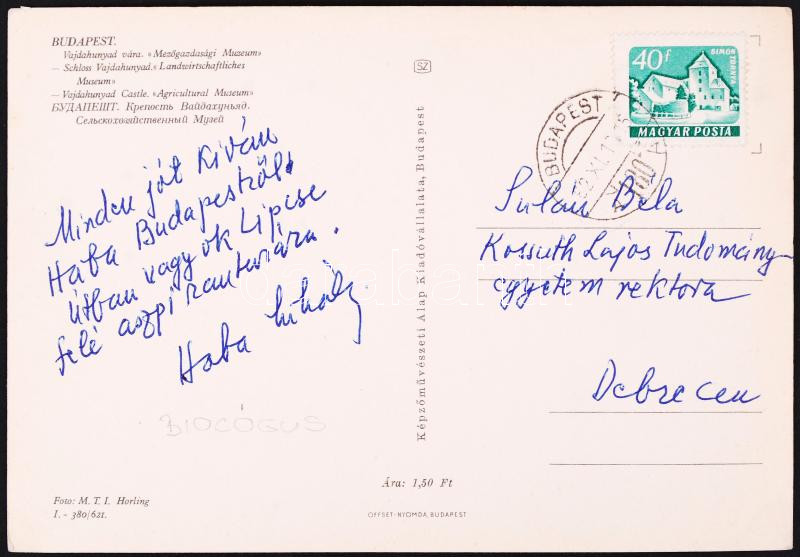 BUDAPEST.
Vajdahunyad vára. «Mezőgazdasági Muzeum»
— Schloss Vajdahunyad. «Landwirtschaftliches
Museum»
— Vajdahunyad Castle. «Agricultural Museum»
БУДАПЕШТ. Крепость Вайдахуньяд.
Сельскохозяйственный Музей
Minden jót kíván
Haba Budapestről.
Útban vagyok Lipcse
felé aszpirantúrára.
Haba Mihály
BIOLÓGUS
Foto: M. T. I. Horling
I. - 380/621.
SZ
Képzőművészeti Alap Kiadóvállalata, Budapest
Ára: 1,50 Ft
OFFSET-NYOMDA, BUDAPEST
40f
SIMON
TORNYA
MAGYAR POSTA
BUDAPEST
Sulán Béla
Kossuth Lajos Tudomány-
egyetem rektora
Debrecen